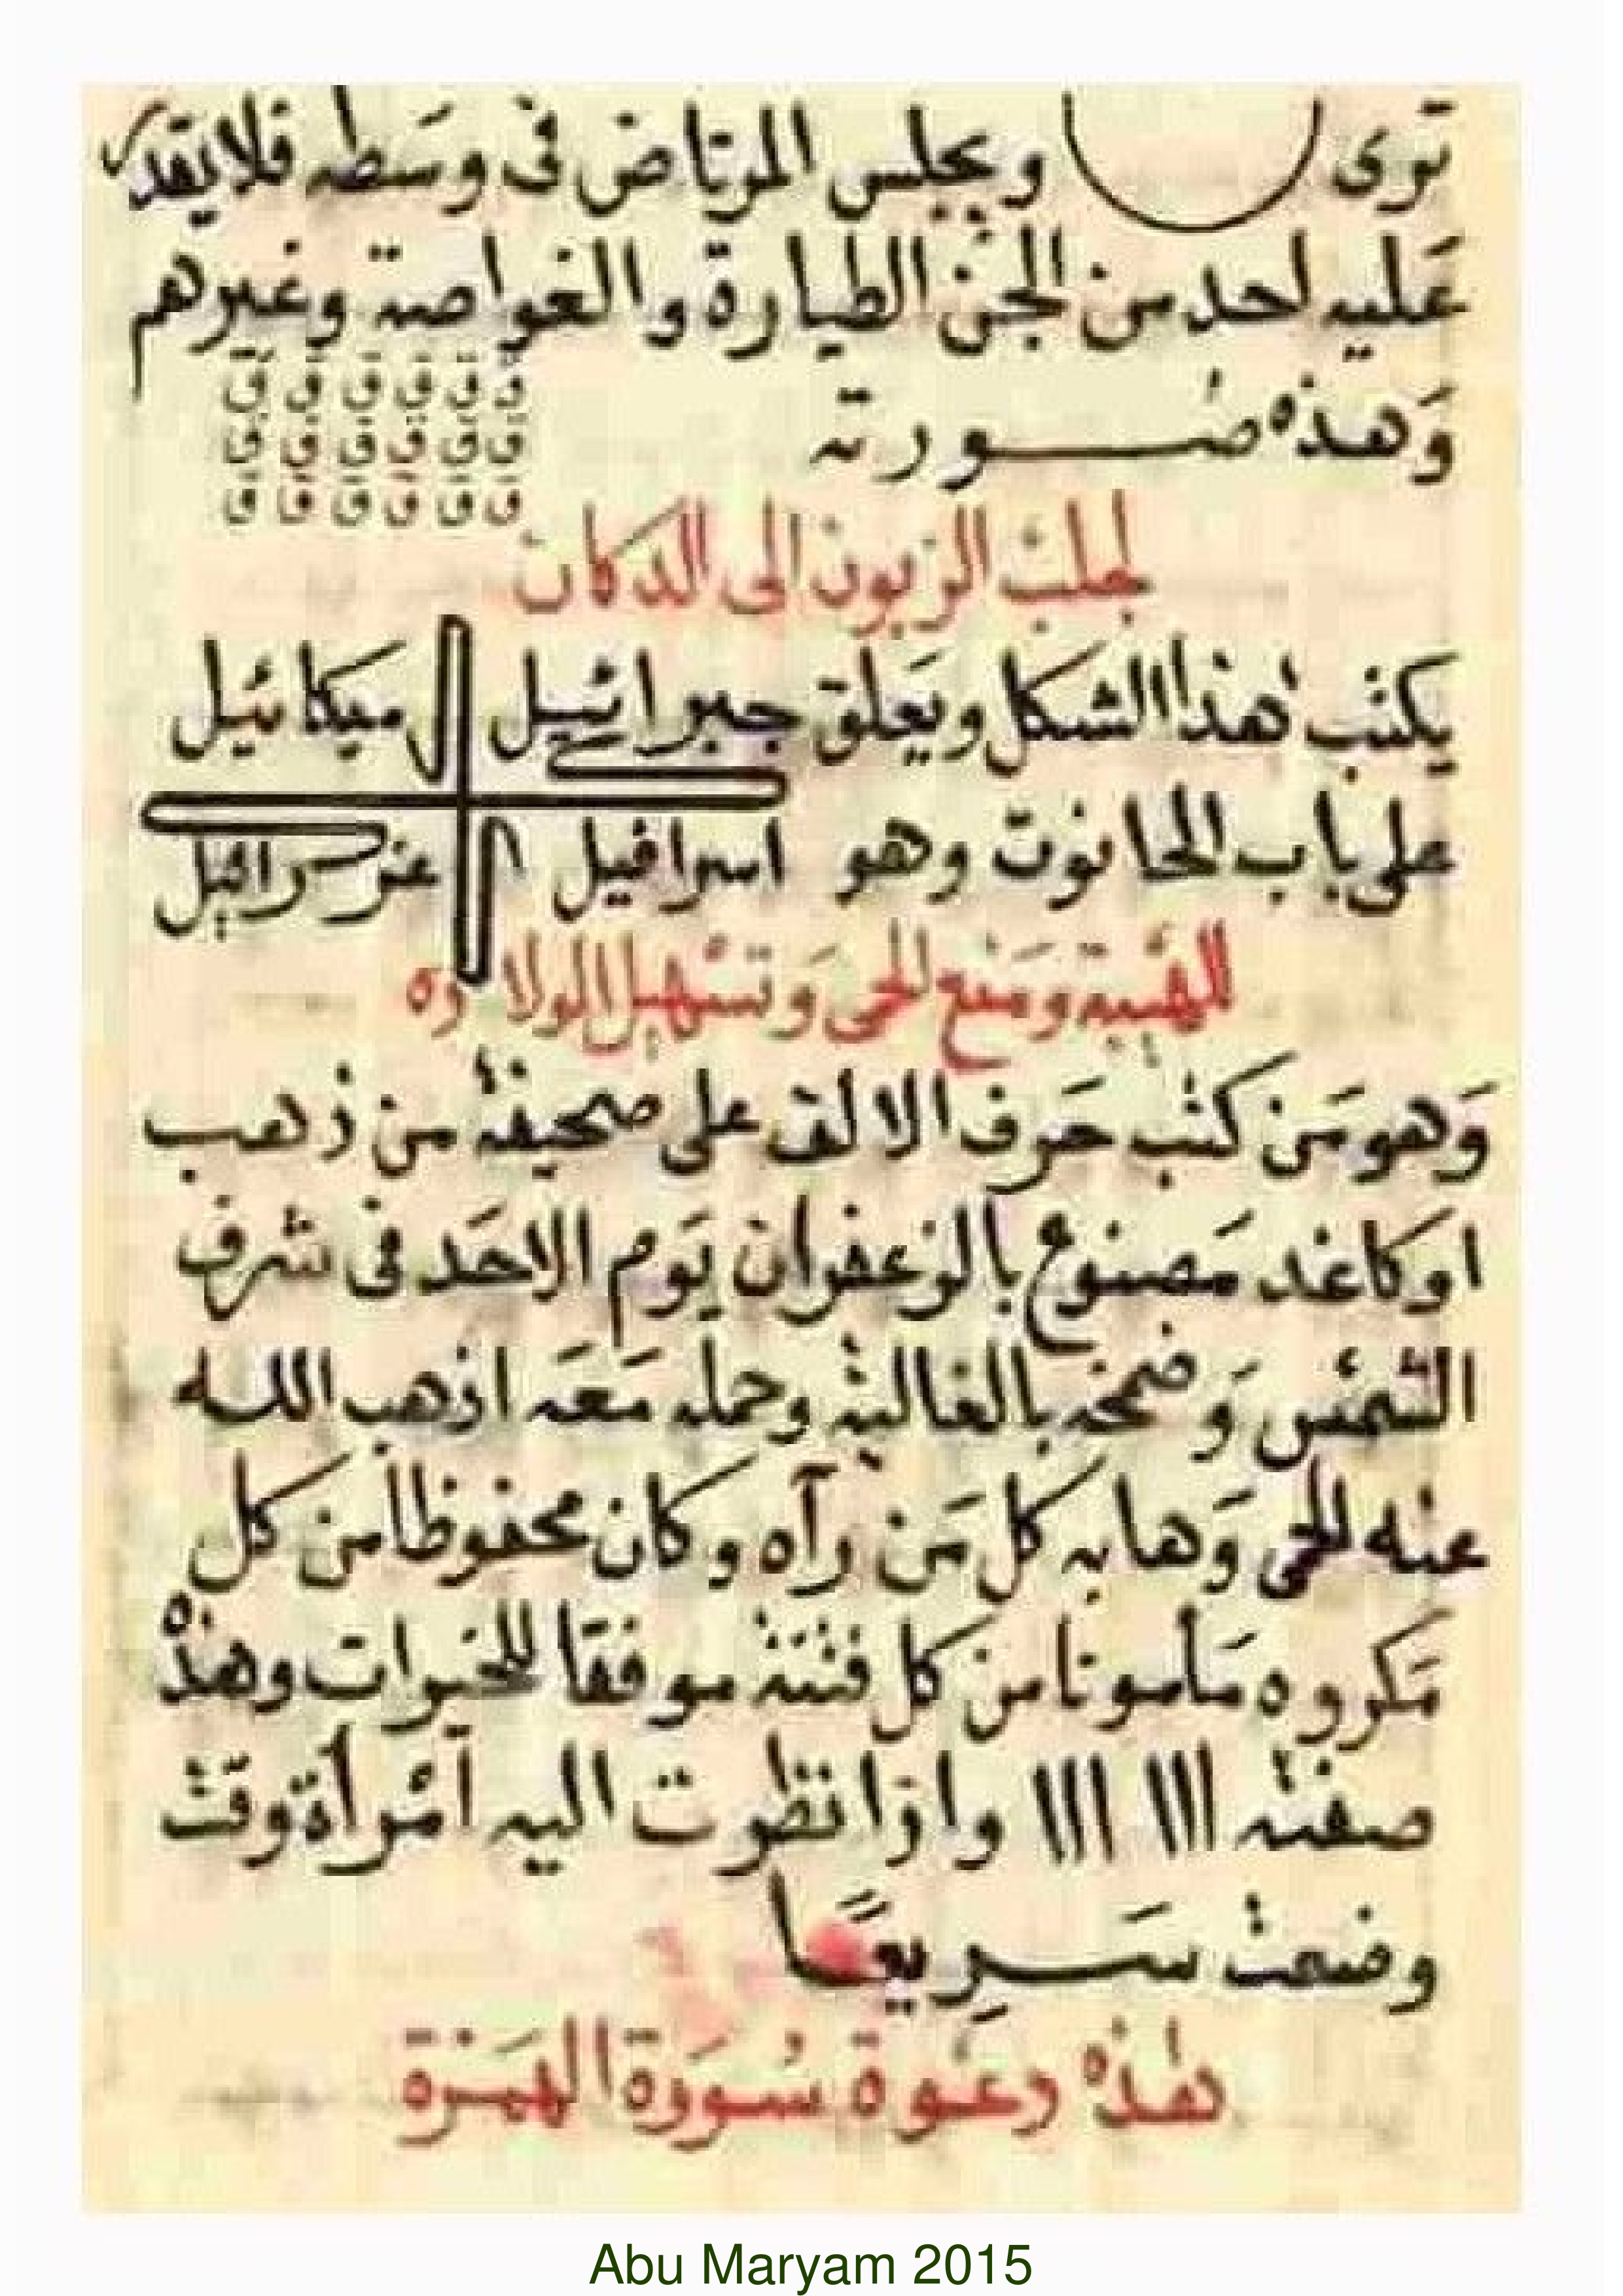 ترى ويجلس المرتاض في وسطه فلا يقدر
عليه احد من الجن الطيارة والغواصة وغيرهم
وهذه صورته
ق ق ق ق ق ق
ق ق ق ق ق ق
ق ق ق ق ق ق
لجلب الزبون الى الدكان
يكتب هذا الشكل ويعلق جبرائيل ميكائيل
على باب الحانوت وهو اسرافيل
للهيبة ومنع الحمى وتسهيل الولادة
وهو من كتب حرف الالف على صحيفة من ذهب
او كاغد مصنوع بالزعفران يوم الاحد في شرف
الشمس وضمخه بالغالية وحمله معه اذهب الله
عنه الحمى وهابه كل من رآه وكان محفوظا من كل
مكروه مأمونا من كل فتنة موفقا للخيرات وهذه
صفته ااا ااا واذا نظرت اليه امرأة وقت
وضعت سريعًا
هذه دعوة سورة الهمزة
Abu Maryam 2015